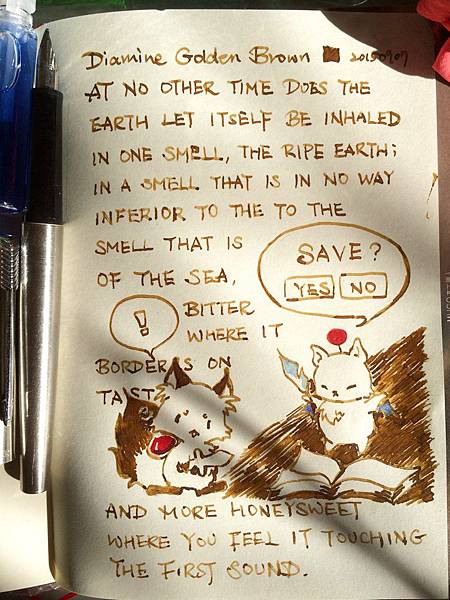 Diamine Golden Brown 20150907
AT NO OTHER TIME DOES THE
EARTH LET ITSELF BE INHALED
IN ONE SMELL, THE RIPE EARTH;
IN A SMELL THAT IS IN NO WAY
INFERIOR TO THE TO THE
SMELL THAT IS
OF THE SEA,
BITTER
WHERE IT
BORDERS ON
TAST
AND MORE HONEYSWEET
WHERE YOU FEEL IT TOUCHING
THE FIRST SOUND.
!
SAVE?
YES NO